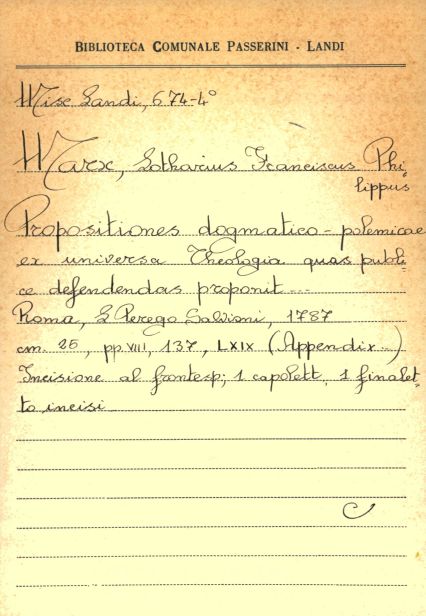 BIBLIOTECA COMUNALE PASSERINI - LANDI
Misc Landi, 674-4°
Marx, Lotharius Franciscus Phi-
lippus
Propositiones dogmatico - polemicae
ex universa Theologia quas publi-
ce defendendas proponit ...
Roma, L Perego Salvioni, 1787
cm. 25, pp. VIII, 137, LXIX (Appendix..)
Incisione al frontesp; 1 capolett, 1 finalet-
to incisi